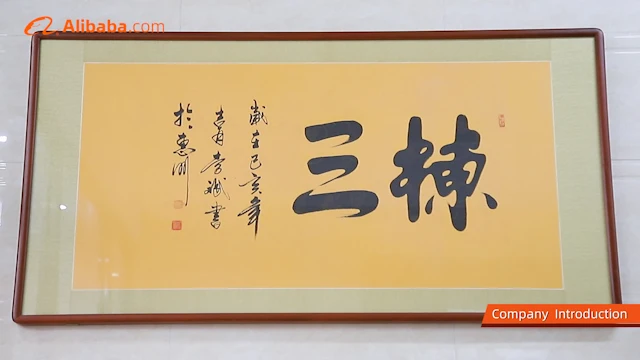 Alibaba.com
棟三
歲在己亥年
李 書
於惠州
Company Introduction